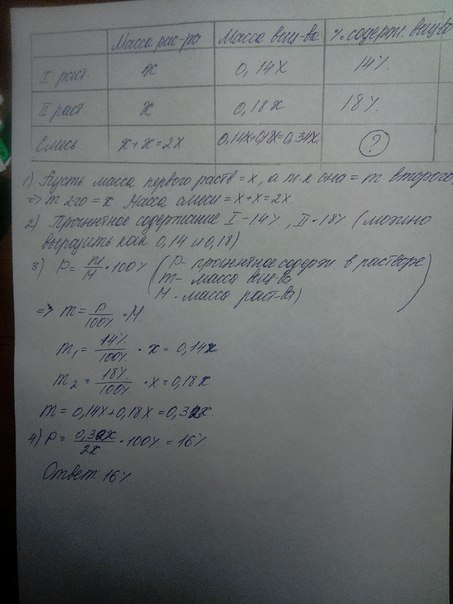 Масса рас-ра Масса вещ-ва % содерж. вещ-ва
I раст x 0,14x 14%
II раст x 0,18x 18%
Смесь x+x=2x 0,14x+0,18x=0,34x ?
1) Пусть масса первого раств = x, а т.к она = m второго,
=> m 2го = x Масса смеси = x+x=2x
2) Процентное содержание I-14%, II-18% (можно
выразить как 0,14 и 0,18)
3) P = m/M · 100% (P- процентное содерж в растворе
m- масса вещ-ва
M- масса раст-ва)
=> m = P/100% · M
m1 = 14%/100% · x = 0,14x
m2 = 18%/100% · x = 0,18x
m = 0,14x+0,18x=0,32x
4) P = 0,32x/2x · 100% = 16%
Ответ: 16%